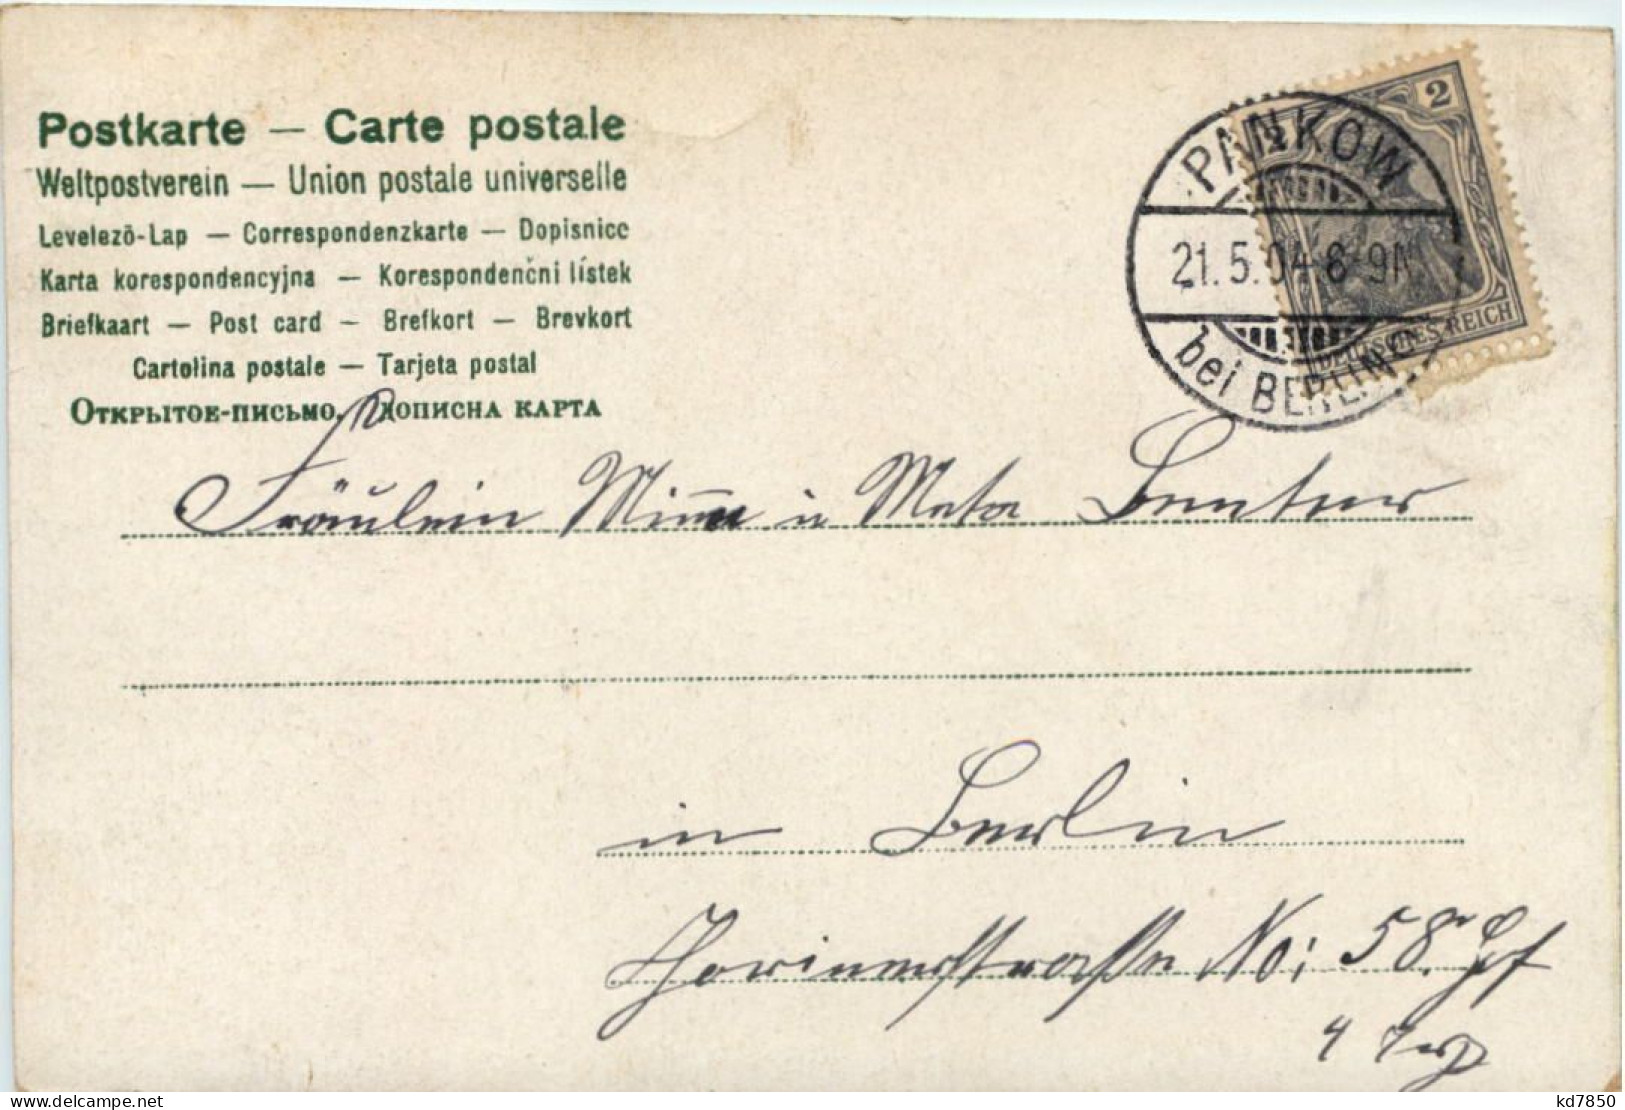 Postkarte — Carte postale
Weltpostverein — Union postale universelle
Levelező-Lap — Correspondenzkarte — Dopisnice
Karta korespondencyjna — Korespondenční lístek
Briefkaart — Post card — Brefkort — Brevkort
Cartolina postale — Tarjeta postal
Открытое-письмо. Дописна карта
PANKOW
21.5.04. 8-9N
bei BERLIN
2
DEUTSCHES REICH
Fräulein u Meta
in Berlin
No: 58.
4
delcampe.net
kd7850